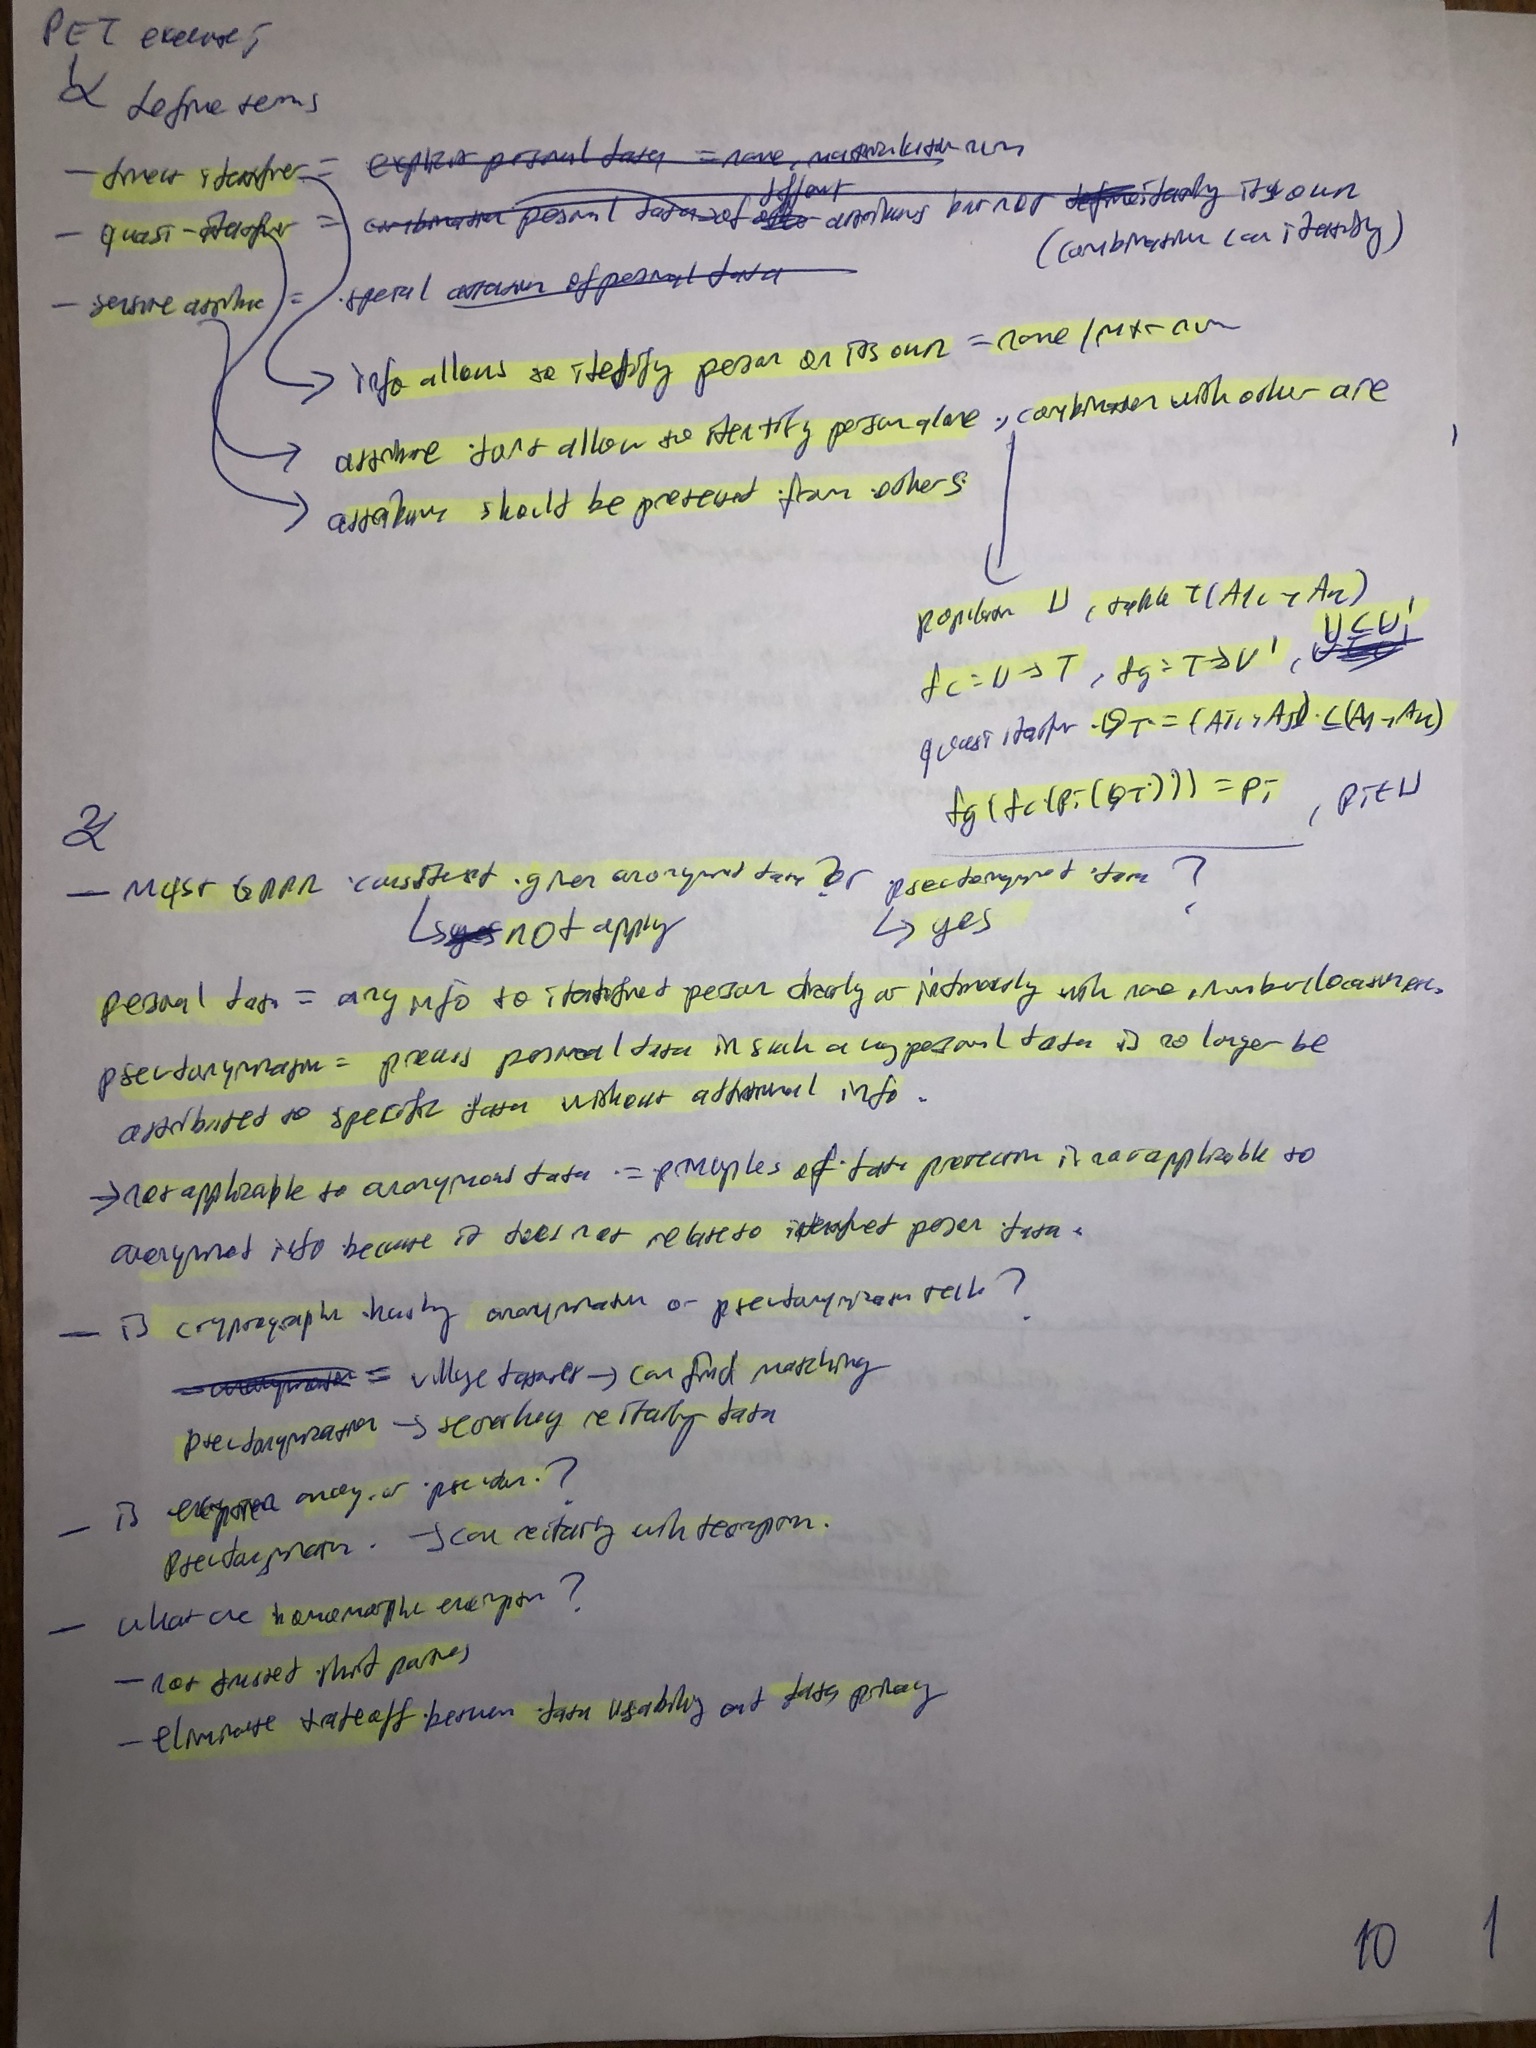 PET exercises
1) define terms
- direct identifier =
- quasi-identifier = personal data of different attributes but not identify its own
(combination can identify)
- sensitive attribute = special
info allows to identify person on its own = name / matr num
attribute don't allow to identify person alone, combination with other are
attributes should be protected from others
population U, table T(A1, , An)
fc = U → T, fg = T → U', U ⊆ U'
quasi identifier QT = (Ai, , Aj) ⊆ (A1, , An)
fg(fc(pi(QT))) = pi , pi ∈ U
2)
- Must GDPR considered given anonymized data? or pseudonymized data?
↳ not apply ↳ yes
personal data = any info to identified person directly or indirectly with name, number, location etc.
pseudonymization = process personal data in such a way personal data is no longer be
attributed to specific data without additional info.
→ not applicable to anonymous data = principles of data protection is not applicable to
anonymized info because it does not relate to identified person data.
- is cryptographic hashing anonymization or pseudonymization tech?
= village dataset → can find matching
pseudonymization → reidentify data
- is encryption anony. or pseudon.?
pseudonymization. → can reidentify with decryption.
- what are homomorphic encryption?
- not trusted third parties
- eliminate tradeoff between data usability and data privacy
10 1